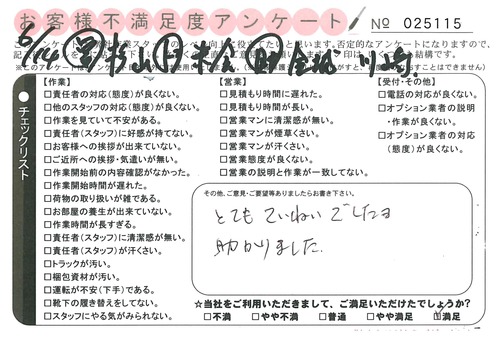 お客様不満足度アンケート
No 025115
チェックリスト
【作業】
□責任者の対応(態度)が良くない。
□他のスタッフの対応(態度)が良くない。
□作業を見ていて不安がある。
□責任者(スタッフ)に好感が持てない。
□お客様への挨拶が出来ていない。
□ご近所への挨拶・気遣いが無い。
□作業開始前の内容確認がなかった。
□作業開始時間が遅れた。
□荷物の取り扱いが雑である。
□お部屋の養生が出来ていない。
□作業時間が長すぎる。
□責任者(スタッフ)に清潔感が無い。
□責任者(スタッフ)が汗くさい。
□トラックが汚い。
□梱包資材が汚い。
□運転が不安(下手)である。
□靴下の履き替えをしてない。
□スタッフにやる気がみられない。
【営業】
□見積もり時間に遅れた。
□見積もり時間が長い。
□営業マンに清潔感が無い。
□営業マンが煙草くさい。
□営業マンが汗くさい。
□営業態度が良くない。
□営業の説明と作業が一致してない。
【受付・その他】
□電話の対応が良くない。
□オプション業者の説明
・作業が良くない。
□オプション業者の対応
(態度)が良くない。
その他、ご意見・ご要望等ありましたらお書き下さい。
とてもていねいでした
助かりました
☆当社をご利用いただきまして、ご満足いただけたでしょうか?
□不満 □やや不満 □普通 □やや満足 □満足